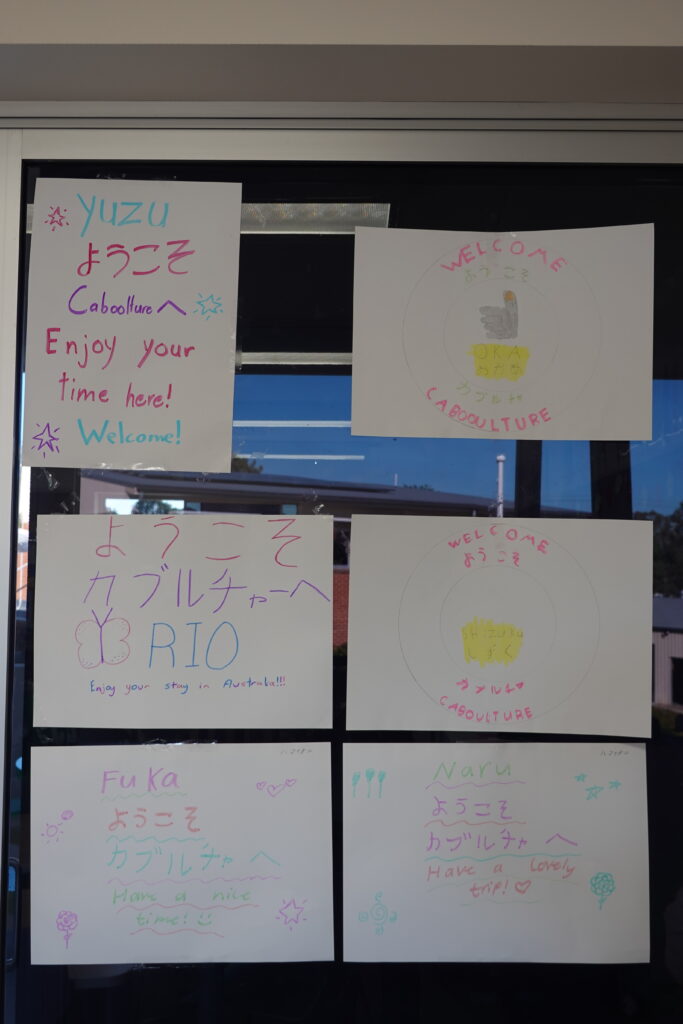 YUZU
ようこそ
Caboolture へ
Enjoy your
time here!
Welcome!
WELCOME
ようこそ
OKA
カブルチャ
CABOOULTURE
ようこそ
カブルチャーへ
RIO
Enjoy your stay in Australia!!!
WELCOME
ようこそ
SHIZUKU
しずく
カブルチャ
CABOOULTURE
Fuka
ようこそ
カブルチャへ
Have a nice
time!
Naru
ようこそ
カブルチャへ
Have a lovely
trip!